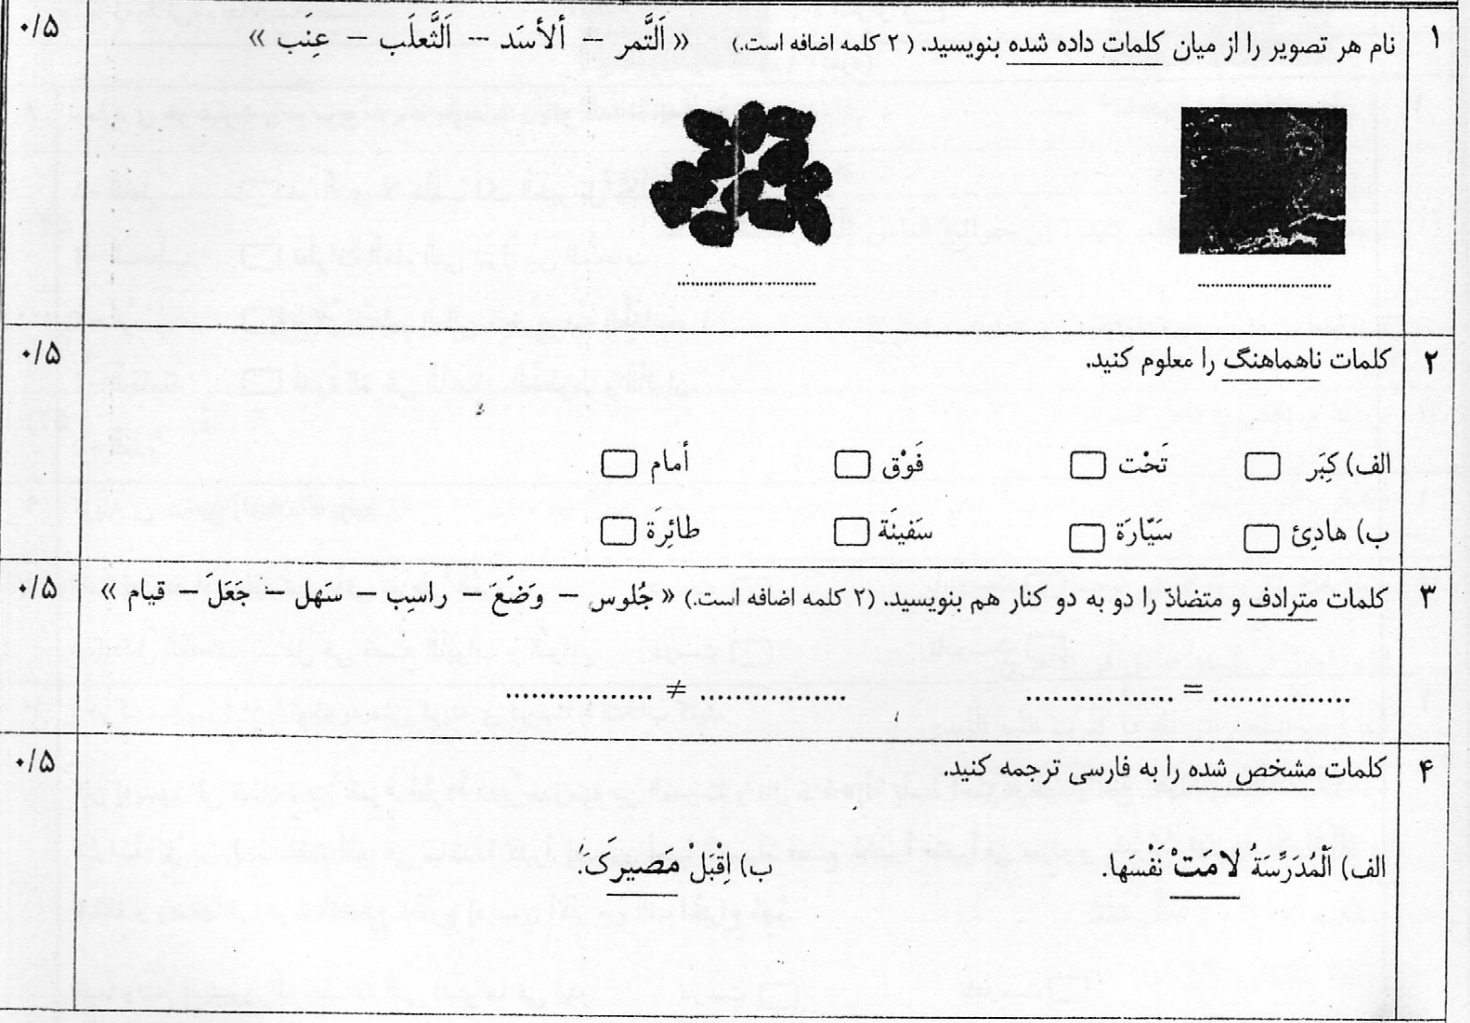 ۱ نام هر تصویر را از میان کلمات داده شده بنویسید. ( ۲ کلمه اضافه است.) « اَلتَّمر – ألأسَد – اَلثَّعلَب – عِنَب » ۰/۵
.................... ....................
۲ کلمات ناهماهنگ را معلوم کنید. ۰/۵
الف) کِبَر □ تَحْت □ فَوْق □ أمام □
ب) هادِئ □ سَیّارَة □ سَفینَة □ طائِرَة □
۳ کلمات مترادف و متضادّ را دو به دو کنار هم بنویسید. (۲ کلمه اضافه است.) « جُلوس – وَضَعَ – راسِب – سَهل – جَعَلَ – قیام » ۰/۵
................ = ................ ................ ≠ ................
۴ کلمات مشخص شده را به فارسی ترجمه کنید. ۰/۵
الف) اَلْمُدَرِّسَةُ لامَتْ نَفْسَها. ب) اِقْبَلْ مَصیرَکَ!